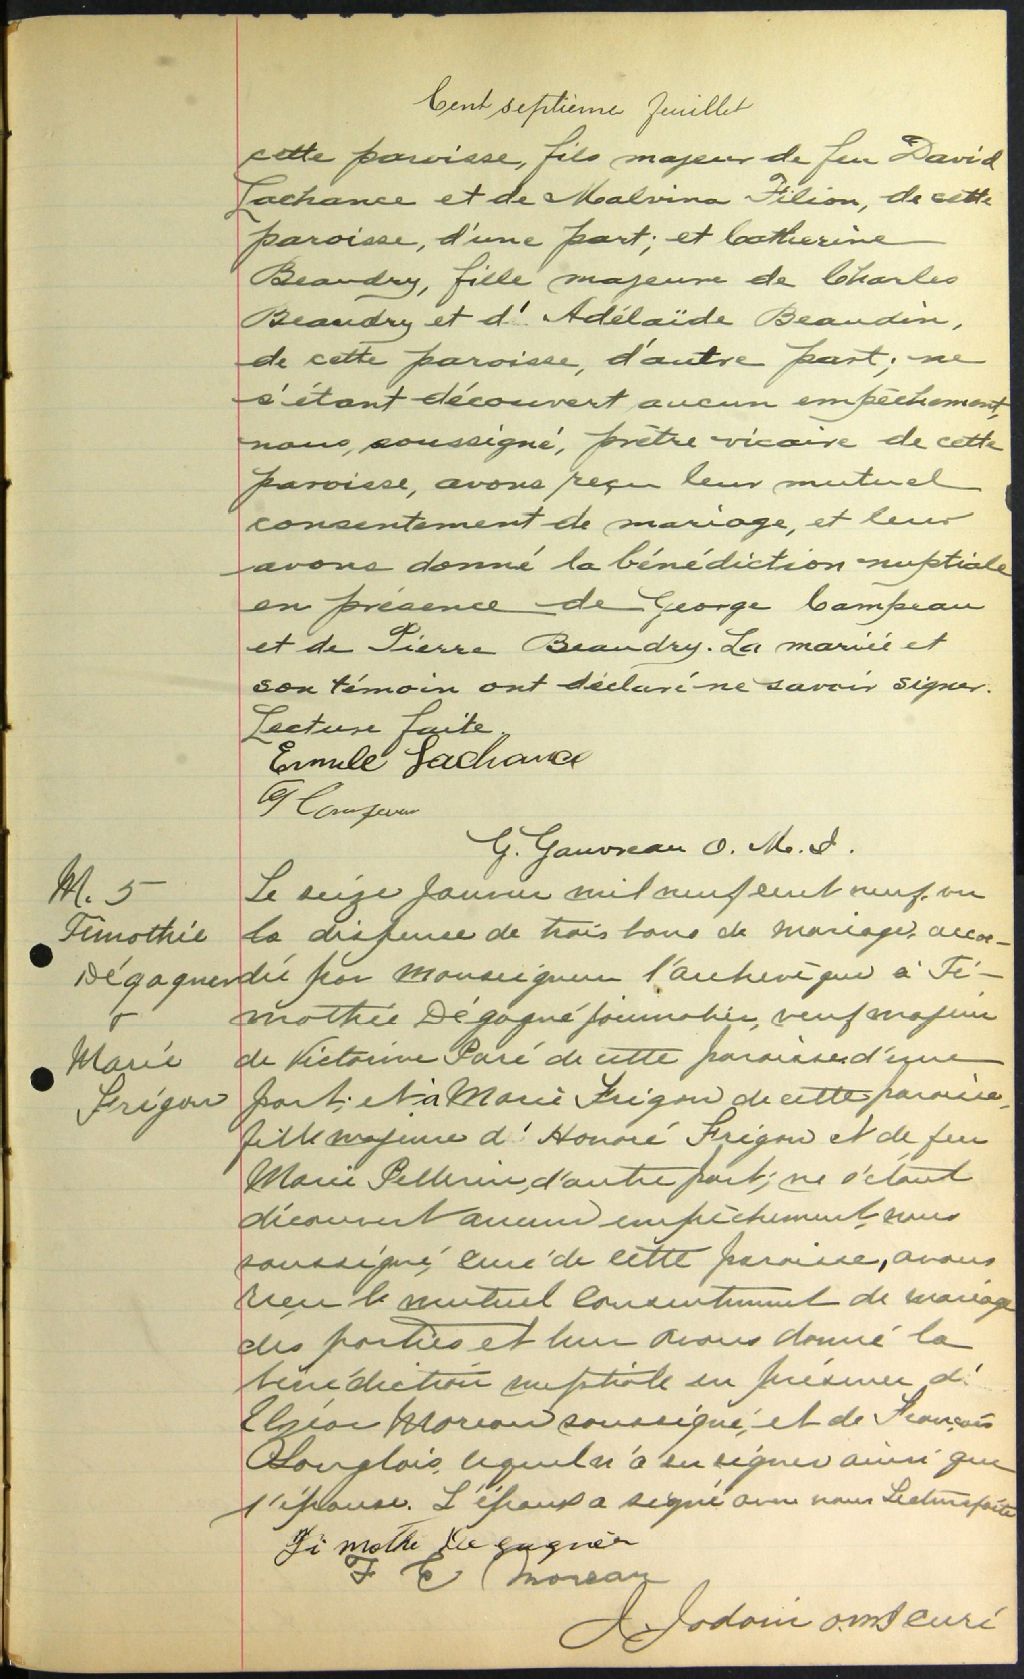 Cent septième feuillet
cette paroisse, fils majeur de feu David
Lachance et de Malvina Filion, de cette
paroisse, d'une part; et Catherine
Beaudry, fille majeure de Charles
Beaudry et d' Adélaïde Beaudin,
de cette paroisse, d'autre part; ne
s'étant découvert aucun empêchement,
nous, soussigné, prêtre vicaire de cette
paroisse, avons reçu leur mutuel
consentement de mariage, et leur
avons donné la bénédiction nuptiale
en présence de George Campeau
et de Pierre Beaudry. La mariée et
son témoin ont déclaré ne savoir signer.
Lecture faite.
Ermile Lachance
G Campeau
G. Gauvreau O. M. I.
M. 5
Timothie
Dégagner
&
Marie
Frigon
Le seize janvier mil neuf cent neuf, vu
la dispense de trois bans de mariage, accor-
dée par Monseigneur l'archevêque à Ti-
mothée Dégagné journalier, veuf majeur
de Victorine Paré de cette paroisse d'une
part; et à Marie Frigon de cette paroisse,
fille majeure d' Honoré Frigon et de feu
Marie Pellerin, d'autre part; ne s'étant
découvert aucun empêchement, nous
soussigné, curé de cette paroisse, avons
reçu le mutuel consentement de mariage
des parties et leur avons donné la
bénédiction nuptiale en présence d'
Elzéar Moreau soussigné, et de François
Langlois, lequel n'a su signer ainsi que
l'épouse. L'époux a signé avec nous Lecture faite
Ti mothe De gagnér
F E Moreau
J. Jodoin o.m.I curé